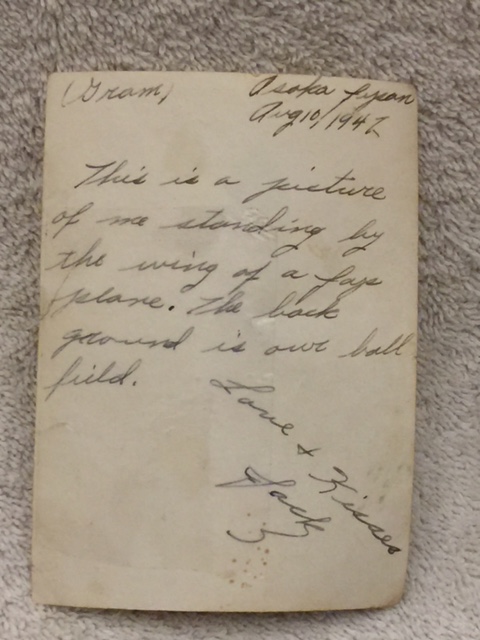 (Gram)
Osaka Japan
Aug 10, 1947
This is a picture
of me standing by
the wing of a Jap
plane. The back
ground is our ball
field.
Love & Kisses
Jack